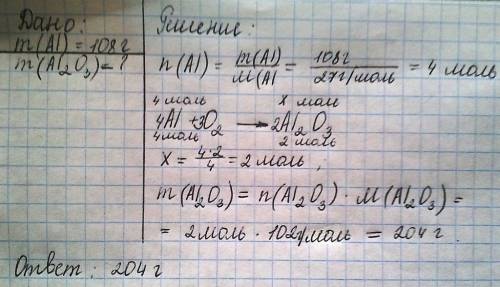 Дано:
m(Al) = 108 г
m(Al₂O₃) = ?
Решение:
n(Al) = m(Al)/M(Al = 108г/27г/моль = 4 моль
4 моль x моль
4Al + 3O₂ → 2Al₂O₃
4 моль 2 моль
x = 4·2/4 = 2 моль ;
m(Al₂O₃) = n(Al₂O₃) · M(Al₂O₃) =
= 2 моль · 102г/моль = 204 г.
Ответ: 204 г